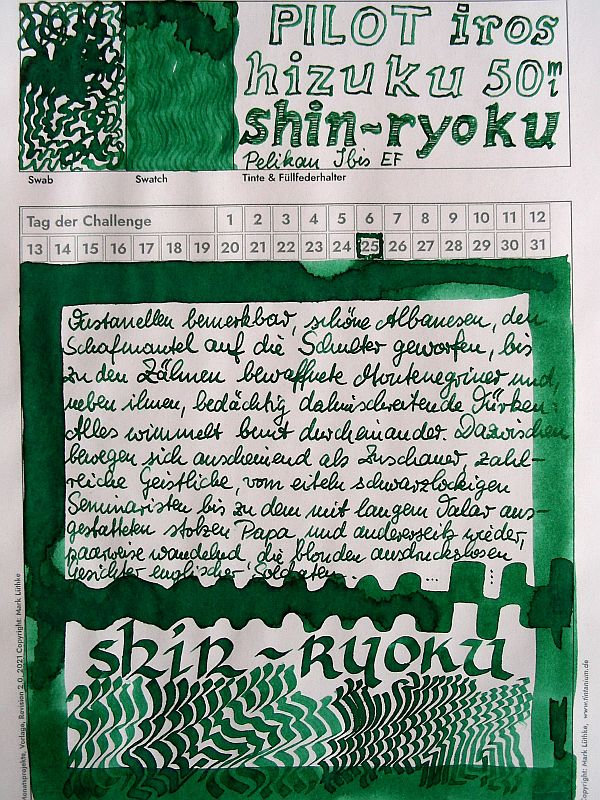 PILOT iros
hizuku 50ml
shin-ryoku
Pelikan Ibis EF
Swab Swatch Tinte & Füllfederhalter
Tag der Challenge 1 2 3 4 5 6 7 8 9 10 11 12
13 14 15 16 17 18 19 20 21 22 23 24 25 26 27 28 29 30 31
Fustanellen bemerkbar, schöne Albanesen, den
Schafmantel auf die Schulter geworfen, bis
zu den Zähnen bewaffnete Montenegriner und,
neben ihnen, bedächtig dahinschreitende Türken:
Alles wimmelt bunt durcheinander. Dazwischen
bewegen sich anscheinend als Zuschauer, zahl-
reiche Geistliche, vom eiteln schwarzlockigen
Seminaristen bis zu dem mit langem Talar aus-
gestatteten stolzen Papa und andererseits wieder,
paarweise wandelnd die blonden ausdruckslosen
Gesichter englischer Soldaten... ...
shin-ryoku
Monatsprojekte, Vorlage, Revision 2.0, 2021 Copyright: Mark Lüthke
Copyright: Mark Lüthke, www.fintanium.de